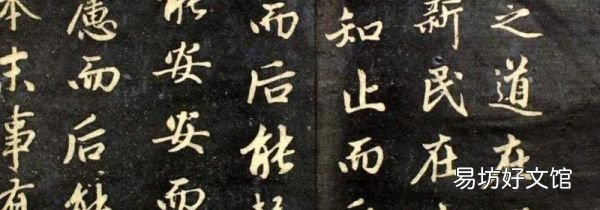 之道在
新民在
知止而
而后能
能安安而
慮而后能
本末事有
易坊好文馆